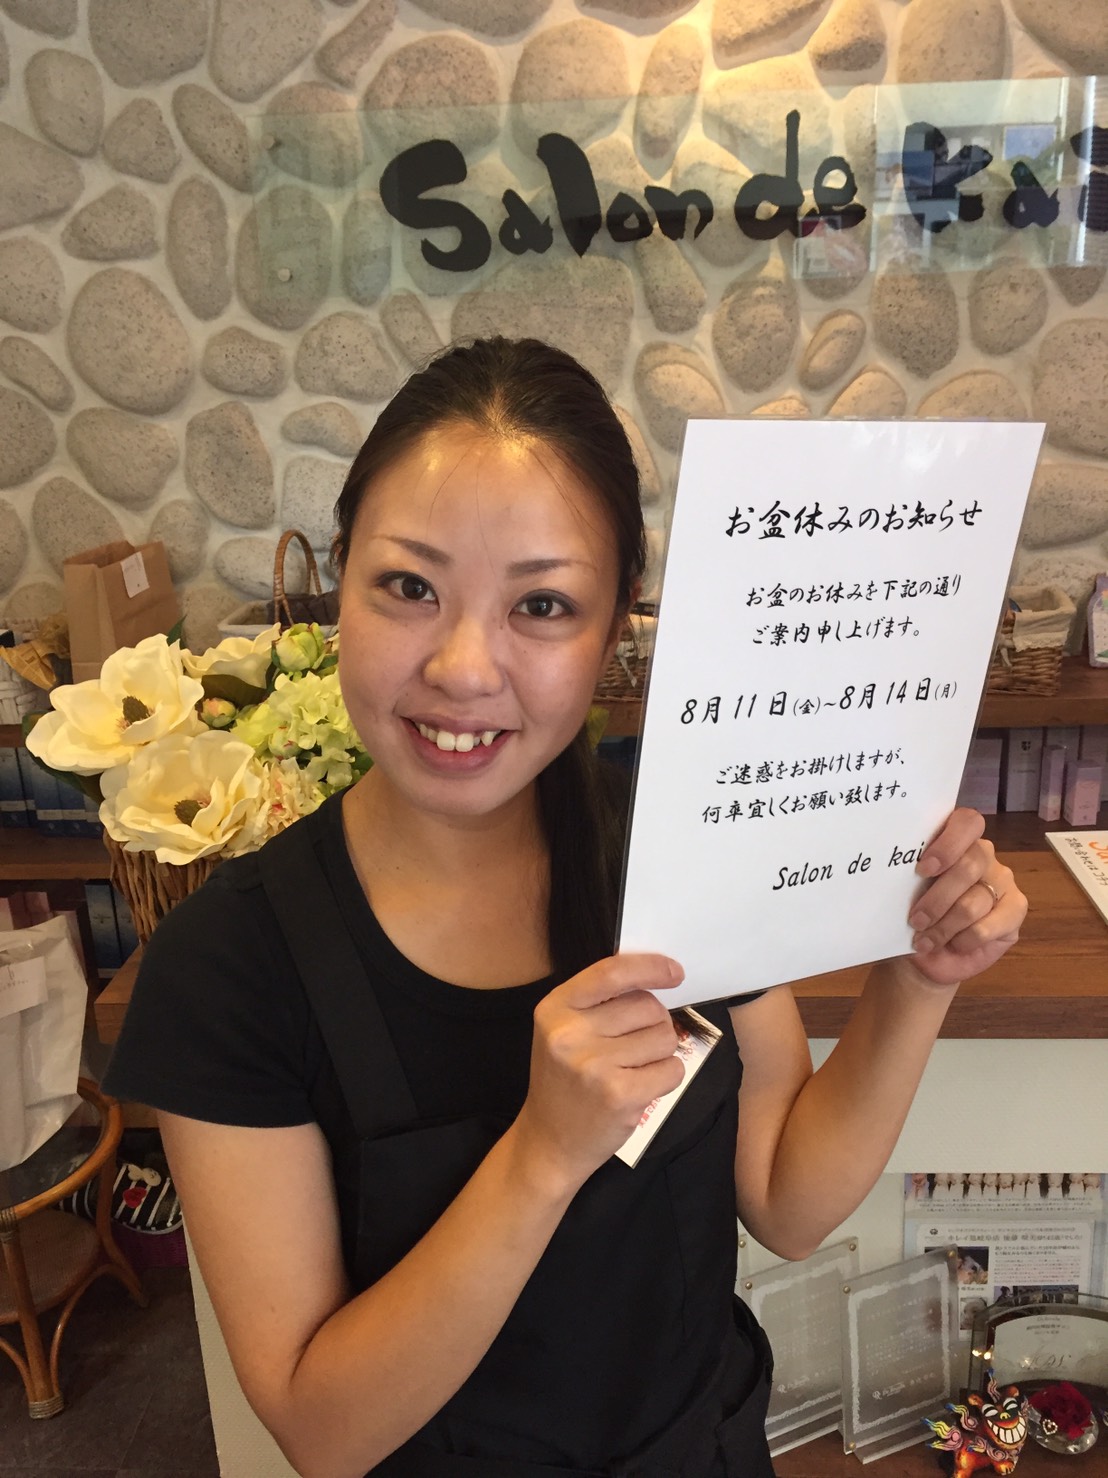 Salon de kai
お盆休みのお知らせ
お盆のお休みを下記の通り
ご案内申し上げます。
8月11日(金)~8月14日(月)
ご迷惑をお掛けしますが、
何卒宜しくお願い致します。
Salon de kai